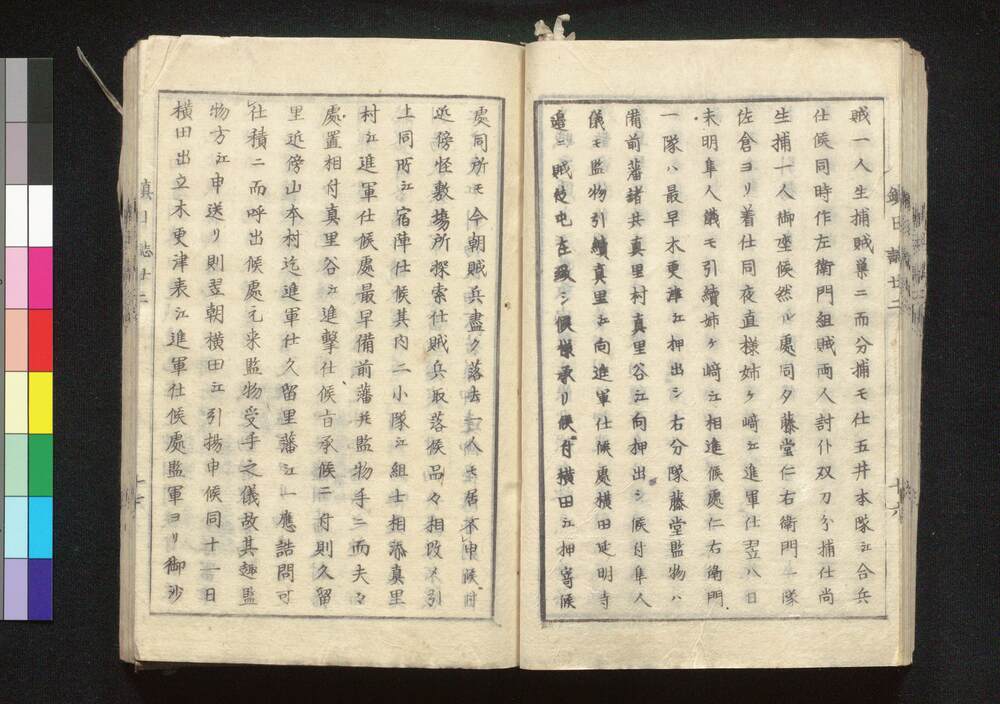 賊一人生捕賊巣ニ而分捕モ仕五井本隊江合兵
仕候同時作左衛門組賊両人討仆双刀分捕仕尚
生捕一人御坐候然ル處同夕藤堂仁右衛門一隊
佐倉ヨリ着仕同夜直様姉ヶ﨑江進軍仕翌八日
未明隼人儀モ引續姉ヶ﨑江相進候處仁右衛門
一隊ハ最早木更津江押出シ右分隊藤堂監物ハ
備前藩諸共真里村真里谷江向押出シ候付隼人
儀モ監物引續真里江向進軍仕候處横田延明寺
邉ニ賊徒屯在致シ候様承り候付横田江押寄候
處同所モ今朝賊兵盡ク落去一人モ居不申候付
近傍怪敷場所探索仕賊兵取落候品々相改メ引
上同所江宿陣仕候其内二小隊江組士相添真里
村江進軍仕候處最早備前藩并監物手ニ而夫々
處置相付真里谷江進撃仕候旨承候ニ付則久留
里近傍山本村迄進軍仕久留里藩江一應詰問可
仕積ニ而呼出候處元来監物受手之儀故其趣監
物方江申送リ則翌朝横田江引揚申候同十一日
横田出立木更津表江進軍仕候處監軍ヨリ御沙
鎮日誌廿二
十六